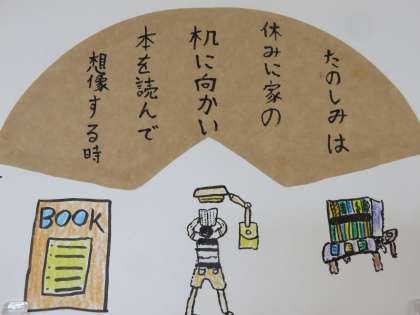 たのしみは
休みに家の
机に向かい
本を読んで
想像する時
BOOK